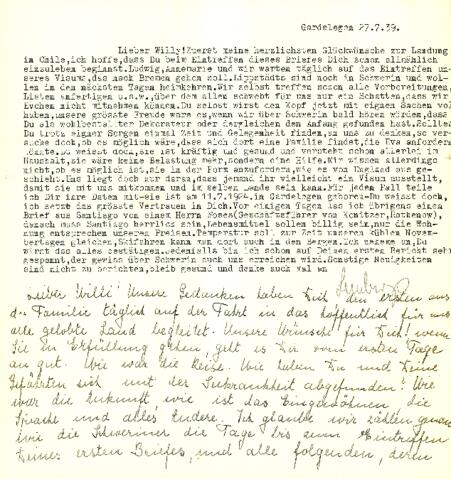 Gardelegen 27.7.39.
Lieber Willy!Zuerst meine herzlichsten Glückwünsche zur Landung
in Chile,ich hoffe,dass Du beim Eintreffen dieses Briefes Dich schon allmählich
einzuleben beginnst.Ludwig,Annemarie und wir warten täglich auf das Eintreffen un-
seres Visums,das nach Bremen gehen soll.Lippstädts sind noch in Schwerin und wol-
len in den nächsten Tagen heimkehren.Wir selbst treffen schon alle Vorbereitungen,
Listen anfertigen u.s.w.,über dem allen schwebt für uns nur ein Schatten,dass wir
Evchen nicht mitnehmen können.Du selbst wirst den Kopf jetzt mit eignen Sachen voll
haben,unsere grösste Freude wäre es,wenn wir über Schwerin bald hören würden,dass
Du als wohlbestallter Dekorateur oder dergleichen den Anfang gefunden hast.Solltest
Du trotz eigner Sorgen einmal Zeit und Gelegenheit finden,an uns zu denken,so ver-
suche doch,ob es möglich wäre,dass sich dort eine Familie findet,die Eva anfordern
könnte.Du weisst doch,sie ist kräftig und gesund und versteht schon allerlei im
Haushalt,sie wäre keine Belastung mehr,sondern eine Hilfe.Wir wissen allerdings
nicht,ob es möglich ist,sie in der Form anzufordern,wie es von England aus ge-
schieht.Uns liegt doch nur daran,dass jemand ihr vielleicht ein Visum ausstellt,
damit sie mit uns mitkommen und im selben Lande sein kann.Für jeden Fall teile
ich Dir ihre Daten mit-sie ist am 11.7.1924.in Gardelegen geboren-Du weisst doch,
ich setze das grösste Vertrauen in Dich.Vor einigen Tagen las ich übrigens einen
Brief aus Santiago von einem Herrn Moses(Geschäftsführer von Konitzer,Rathenow),
danach muss Santiago herrlich sein,Lebensmittel sollen billig sein,nur die Woh-
nung entsprechen unseren Preisen.Temperatur soll zur Zeit unseren kühlen Novem-
bertagen gleichen,Skifahren kann man dort auch in den Bergen.Ich nehme an,Du
wirst das alles bestätigen.Jedenfalls bin ich schon auf Deinen ersten Bericht sehr
gespannt,der gewiss über Schwerin auch uns erreichen wird.Sonstige Neuigkeiten
sind nicht zu berichten,bleib gesund und denke auch mal an
Lieber Willi! Unsere Gedanken haben Dich den ersten aus
d. Familie täglich auf der Fahrt in das hoffentlich für uns
alle gelobte Land begleitet. Unsere Wünsche für Dich! wenn
Sie in Erfüllung gehen, geht es Dir vom ersten Tage
an gut. Wie war die Reise. Wie haben Du und Deine
Gefährten sich mit der Seekrankheit abgefunden! Wie
war die Ankunft, wie ist das Eingewöhnen, die
Sprache und alles Andere. Ich glaube wir zählen genau
wie die Schweriner die Tage bis zum Eintreffen
Deines ersten Briefes, und alle folgenden, deren